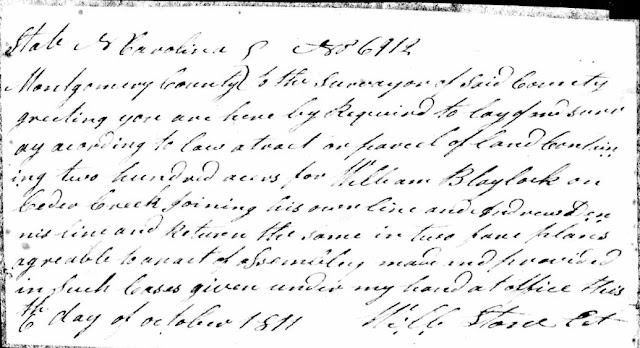 State N Carolina } No 6912
Montgomery County } To the Survayor of Said County
greeting you are here by Required to lay of and surv
ay acording to law a tract or parcel of land Contin
ing two hundrid acers for William Blaylock on
Ceder Creek Joining his own line and Andrew Den
nis line and Return the same in two fare plans
agreable to an act of assembley made and provided
in Such Cases given under my hand at office this
6th day of october 1811 Will Stone Et